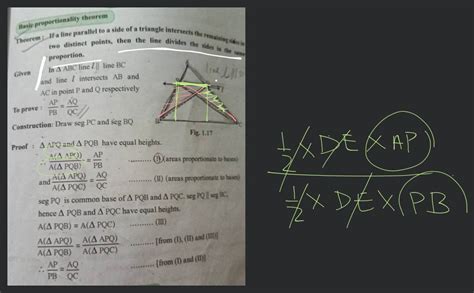 Basic proportionality theorem
Theorem : If a line parallel to a side of a triangle intersects the remaining sides in
two distinct points, then the line divides the sides in the same
proportion.
Given : In Δ ABC line l || line BC
and line l intersects AB and
AC in point P and Q respectively
To prove : AP/PB = AQ/QC
Construction: Draw seg PC and seg BQ
Fig. 1.17
Proof : Δ APQ and Δ PQB have equal heights.
∴ A(Δ APQ)/A(Δ PQB) = AP/PB .......... (I) (areas proportionate to bases)
and A(Δ APQ)/A(Δ PQC) = AQ/QC .......... (II) (areas proportionate to bases)
seg PQ is common base of Δ PQB and Δ PQC. seg PQ || seg BC,
hence Δ PQB and Δ PQC have equal heights.
A(Δ PQB) = A(Δ PQC) .......... (III)
A(Δ APQ)/A(Δ PQB) = A(Δ APQ)/A(Δ PQC) .......... [from (I), (II) and (III)]
∴ AP/PB = AQ/QC .......... [from (I) and (II)]
1/2 X D E X AP
1/2 X D E X PB